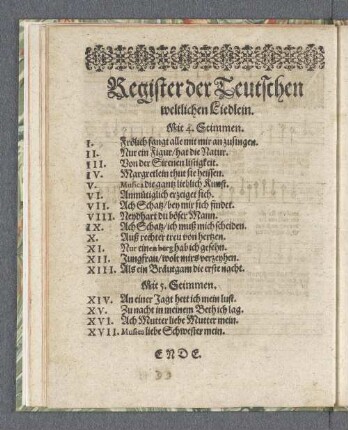 Register der Teutschen
weltlichen Liedlein.
Mit 4. Stimmen.
I. Frölich fangt alle mit mir an zusingen.
II. Nur ein Figur/ hat die Natur.
III. Von der Sirenen listigkeit.
IV. Margretlein thut sie heissen.
V. Musica die gantz lieblich Kunst.
VI. Anmütiglich erzeiget sich.
VII. Ach Schatz/ bey mir sich findet.
VIII. Neydhart du böser Mann.
IX. Ach Schatz/ ich muß mich scheiden.
X. Auß rechter treu von hertzen.
XI. Nur einen hab ich gesehn.
XII. Jungfrau/ wolt mirs verzeyhen.
XIII. Als ein Bräutgam die erste nacht.
Mit 5. Stimmen.
XIV. An einer Jagt hett ich mein lust.
XV. Zu nacht in meinem Beth ich lag.
XVI. Ach Mutter liebe Mutter mein.
XVII. Musica liebe Schwester mein.
ENDE.